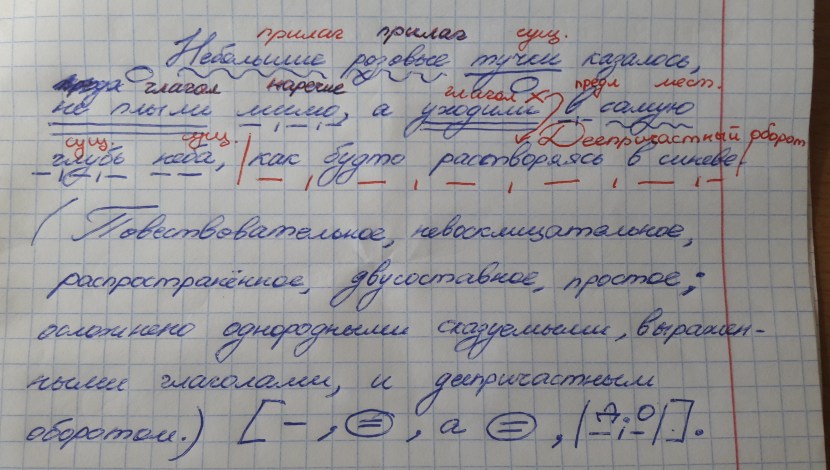 прилаг прилаг сущ.
Небольшие розовые тучки казалось,
глагол наречие глагол предл мест.
не плыли мимо, а уходили в самую
сущ. сущ. Деепричастный оборот
глубь неба, | как будто расстворяясь в синеве |.
(Повествовательное, невосклицательное,
распространённое, двусоставное, простое;
осложнено однородными сказуемыми, выражен-
ными глаголами, и деепричастным
оборотом.) [–, =, а =, |Д.О|].